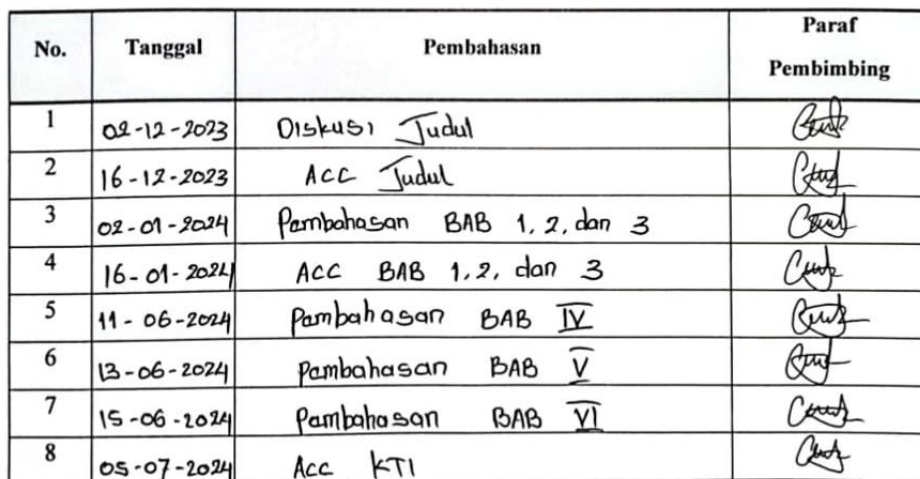 No. Tanggal Pembahasan Paraf Pembimbing
1 02-12-2023 Diskusi Judul
2 16-12-2023 ACC Judul
3 02-01-2024 Pembahasan BAB 1, 2, dan 3
4 16-01-2024 ACC BAB 1, 2, dan 3
5 11-06-2024 Pembahasan BAB IV
6 13-06-2024 Pembahasan BAB V
7 15-06-2024 Pembahasan BAB VI
8 05-07-2024 Acc KTI